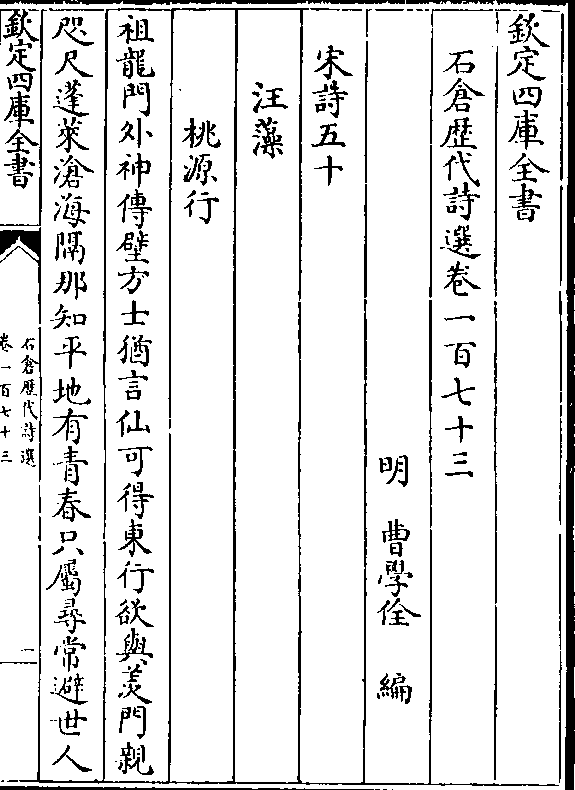 欽定四庫全書
石倉歴代詩選卷一百七十三
明 曹學佺 編
宋詩五十
汪藻
桃源行
祖龍門外神傳壁方士猶言仙可得東行欲與羨門親
咫尺蓬萊滄海隔那知平地有青春只屬尋常避世人
欽定四庫全書
石倉歴代詩選
卷一百七十三
一